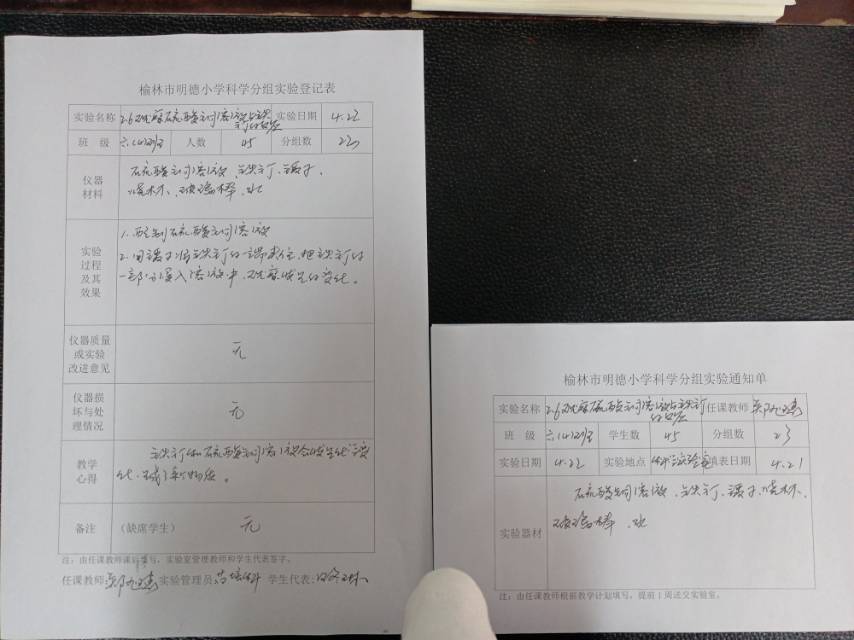 榆林市明德小学科学分组实验登记表
实验名称 2.6观察硫酸铜溶液与铁钉的反应 实验日期 4.22
班 级 六.(4)班 人数 45 分组数 23
仪器材料
硫酸铜溶液、铁钉、镊子、
烧杯、玻璃棒、水
实验过程及其效果
1.配制硫酸铜溶液
2.用镊子将铁钉的一端夹住,把铁钉的
一部分浸入溶液中,观察发生的变化。
仪器质量或实验改进意见 无
仪器损坏与处理情况 无
教学心得
铁钉和硫酸铜溶液会发生化学变
化,生成新物质。
备注 (缺席学生) 无
注:由任课教师课后填写,实验室管理教师和学生代表签字。
任课教师: 实验管理员: 学生代表:
榆林市明德小学科学分组实验通知单
实验名称 2.6观察硫酸铜溶液与铁钉的反应 任课教师
班 级 六.(4)班 学生数 45 分组数 23
实验日期 4.22 实验地点 科学实验室 填表日期 4.21
实验器材
硫酸铜溶液、铁钉、镊子、烧杯、
玻璃棒、水
注:由任课教师根据教学计划填写,提前1周送交实验室。